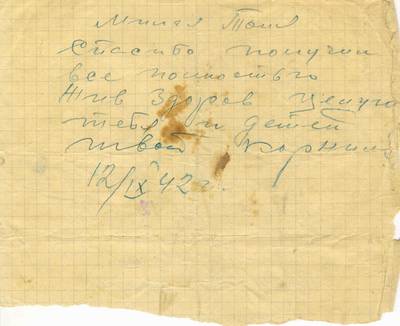 Милая Таня
Спасибо получил
все полностью
Жив здоров Целую
тебя и детей
твой Корнил
12/IX 42 г.